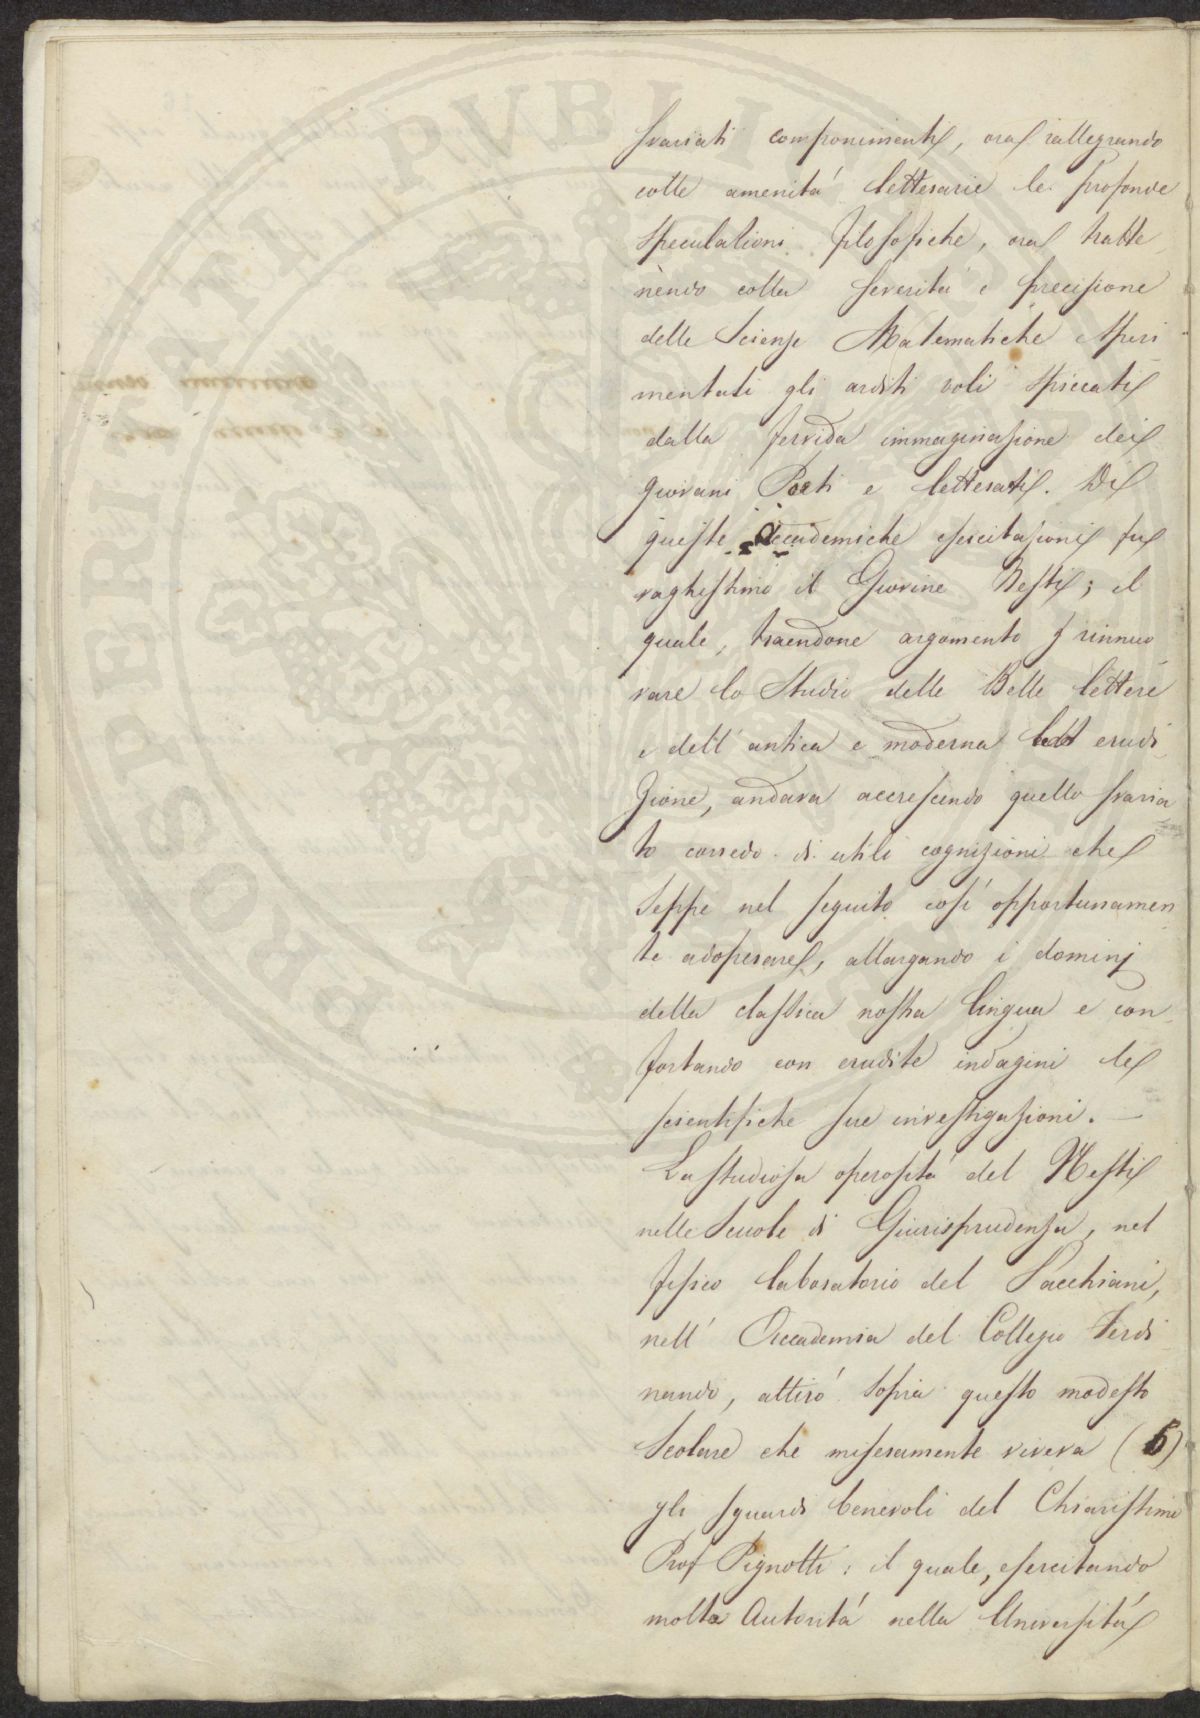 svariati componimenti, ora rallegrando
colle amenitá letterarie le profonde
speculazioni filosofiche, ora tratte
nèndo colla severitá e precisione
delle Scienze Matematiche esperi
mentali gli arditi voli spiccati
dalla fervida immaginazione dei
giovani Poeti e letterati. Di
queste accademiche esercitazioni fu
vaghissimo il Giovine Nesti; il
quale, traendone argomento p rinnuo
vare lo Studio delle Belle lettere
e dell' antica e moderna erudi
zione, andava accrescendo quello svaria
to corredo di utili cognizioni che
seppe nel seguito cosí opportunamen
te adoperare, allargando i dominj
della classica nostra lingua e con
fortando con erudite indagini le
scientifiche sue investigazioni. —
La studiosa operositá del Nesti
nelle Scuole di Giurisprudenza, nel
fisico laboratorio del Pacchiani,
nell' Accademia del Collegio Ferdi
nando, attiró sopra questo modesto
Scolare che miseramente viveva (5)
gli sguardi benevoli del Chiarissimo
Prof Pignotti: il quale, esercitando
molta Autoritá nella Universitá
PVBLI